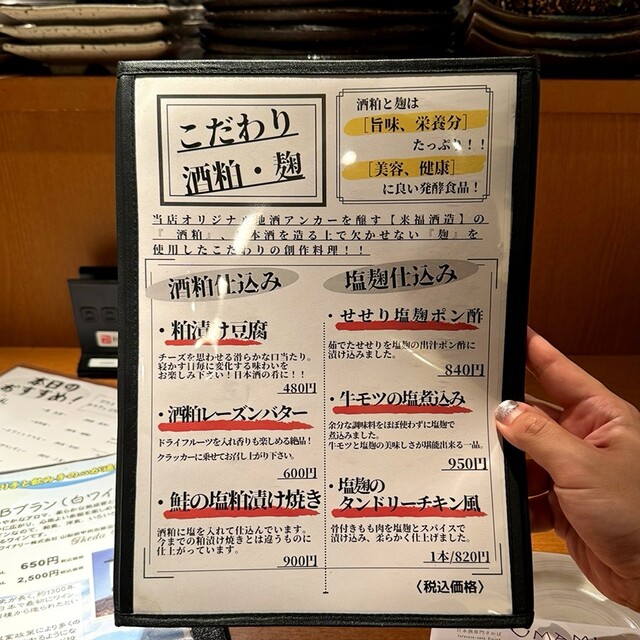 こだわり
酒粕・麹
酒粕と麹は
［旨味、栄養分］
たっぷり！！
［美容、健康］
に良い発酵食品！
当店オリジナル地酒アンカーを醸す【来福酒造】の
『酒粕』、日本酒を造る上で欠かせない『麹』を
使用したこだわりの創作料理！！
酒粕仕込み
・粕漬け豆腐
チーズを思わせる滑らかな口当たり。
寝かす日毎に変化する味わいを
お楽しみ下さい！日本酒の肴に！！
480円
・酒粕レーズンバター
ドライフルーツを入れ香りも楽しめる絶品！
クラッカーに乗せてお召し上がり下さい。
600円
・鮭の塩粕漬け焼き
酒粕に塩を入れて仕込んでいます。
今までの粕漬け焼きとは違うものに
仕上がっています。
900円
塩麹仕込み
・せせり塩麹ポン酢
茹でたせせりを塩麹の出汁ポン酢に
漬け込みました。
840円
・牛モツの塩煮込み
余分な調味料をほぼ使わずに塩麹で
煮込みました。
牛モツと塩麹の美味しさが堪能出来る一品。
950円
・塩麹の
タンドリーチキン風
骨付きもも肉を塩麹とスパイスで
漬け込み、柔らかく仕上げました。
1本/820円
〈税込価格〉
本日の
おすすめ！
Bプラン（白ワイ
650円
2,500円